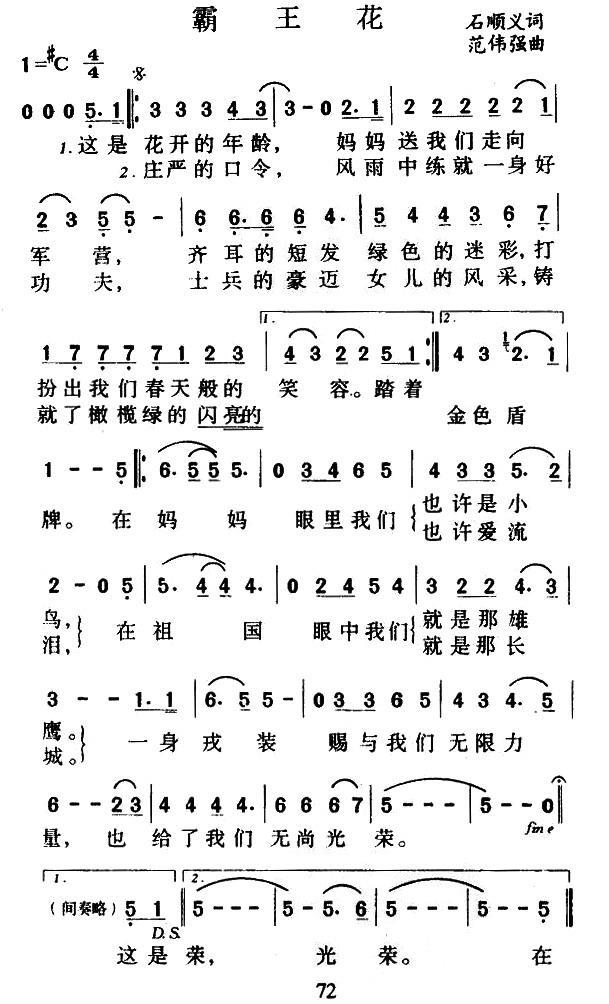 霸 王 花
石顺义词
范伟强曲
1=#C 4/4
0 0 0 5.1 3 3 3 4 3 3-0 2.1 2 2 2 2 2 1
1.这是 花开的年龄， 妈妈 送我们走向
2.庄严的口令， 风雨 中练就一身好
2 3 5 5 - 6 6.6 6 6 4. 5 4 4 3 6 7
军 营， 齐耳的短发 绿色的迷彩,打
功 夫， 士兵的豪迈 女儿的风采,铸
1. 2.
1 7 7 7 7 1 2 3 4 3 2 2 5 1 4 3 1 2. 1
扮出我们春天般的 笑 容。踏着
就了橄榄绿的闪亮的 金色盾
1 - - 5 6. 5 5 5. 0 3 4 6 5 4 3 3 5. 2
牌。在妈 妈 眼里我们 也许是小
也许爱流
2 - 0 5 5. 4 4 4. 0 2 4 5 4 3 2 2 4. 3
鸟， 在祖 国 眼中我们 就是那雄
泪， 就是那长
3 - - 1.1 6. 5 5 - 0 3 3 6 5 4 3 4. 5
鹰。 一身戎 装 赐与我们无限力
城。
6 - - 2 3 4 4 4 4. 6 6 6 6 7 5 - - - 5 - - 0
量， 也 给了我们 无尚光 荣。
fine
1. 2.
（间奏略）5 1 5 - - - 5 - 5. 6 5 - - - 5 - - 5
D.S.
这是荣， 光 荣。 在
72